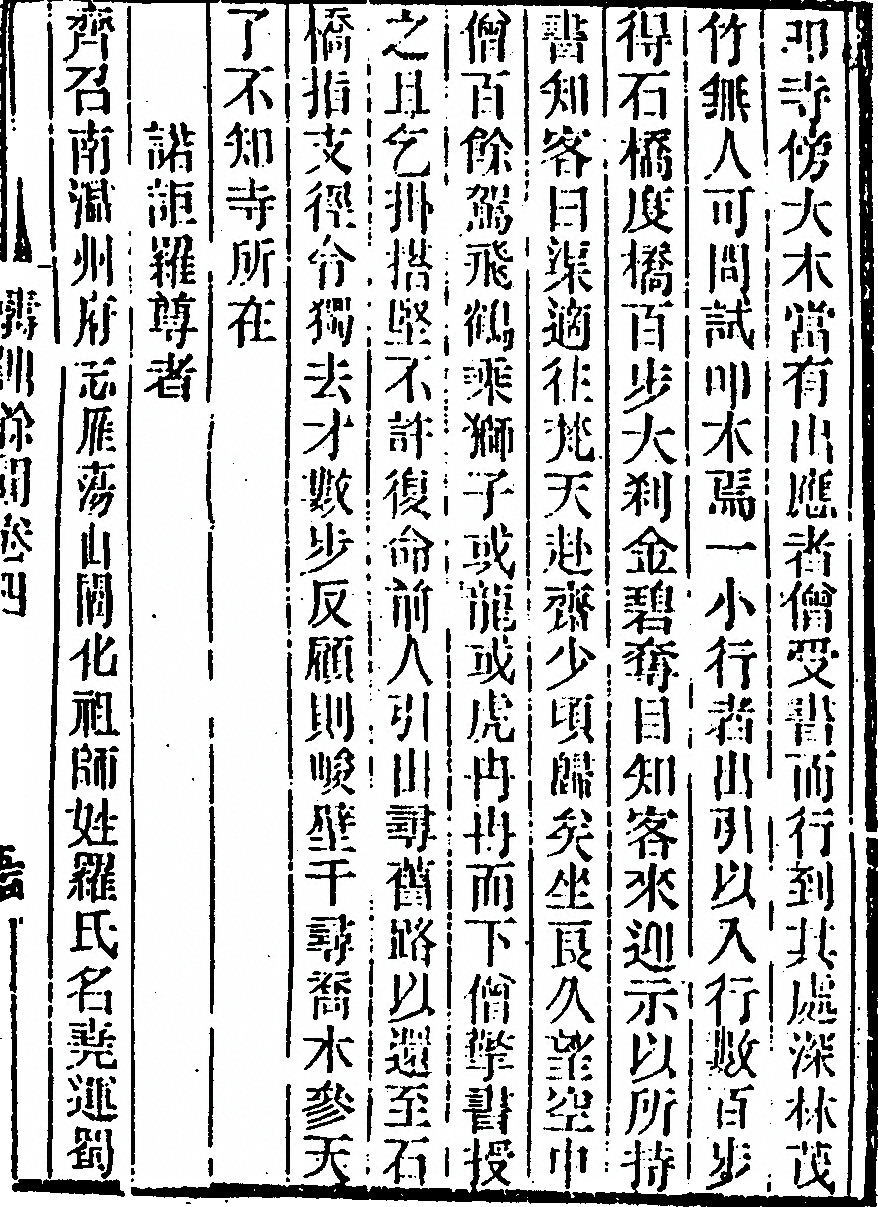 叩寺傍大木當有出應者僧受書而行到其處深林茂
竹無人可問試叩木焉一小行者出引以入行數百步
得石橋度橋百步大刹金碧奪目知客來迎示以所持
書知客曰渠適往梵天赴齋少頃歸矣坐良久望空中
僧百餘駕飛鶴乘獅子或龍或虎冉冉而下僧擎書授
之且乞掛搭堅不許復命前人引出尋舊路以還至石
橋指支徑令獨去才數步反顧則峻壁千尋喬木參天
了不知寺所在
諾詎羅尊者
齊召南溫州府志雁蕩山開化祖師姓羅氏名堯運蜀
餘聞卷四